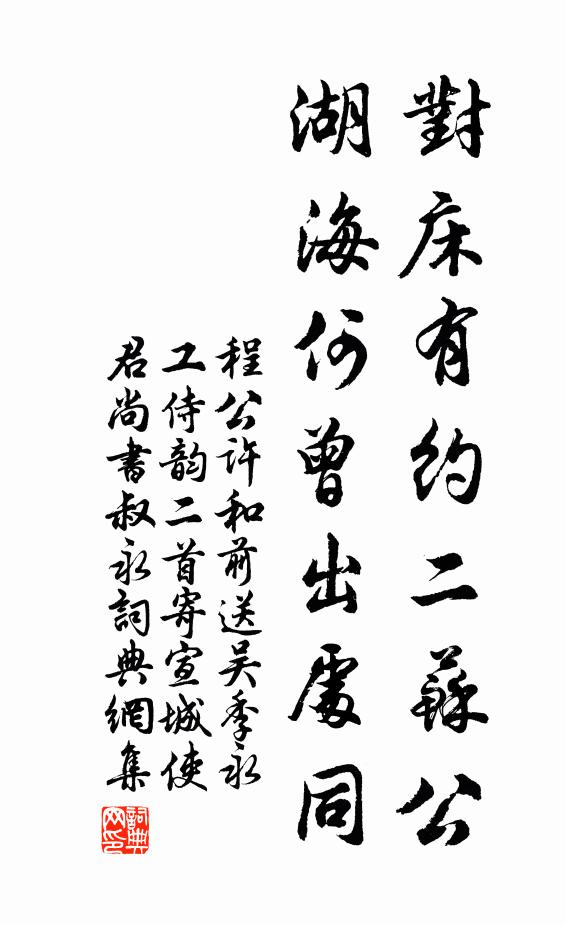 對床有約二蘇公
湖海何曾出處同
程公許和前送吴季永
工侍韵二首寄宣城使
君尚書叔永詞典網集
詞典网印